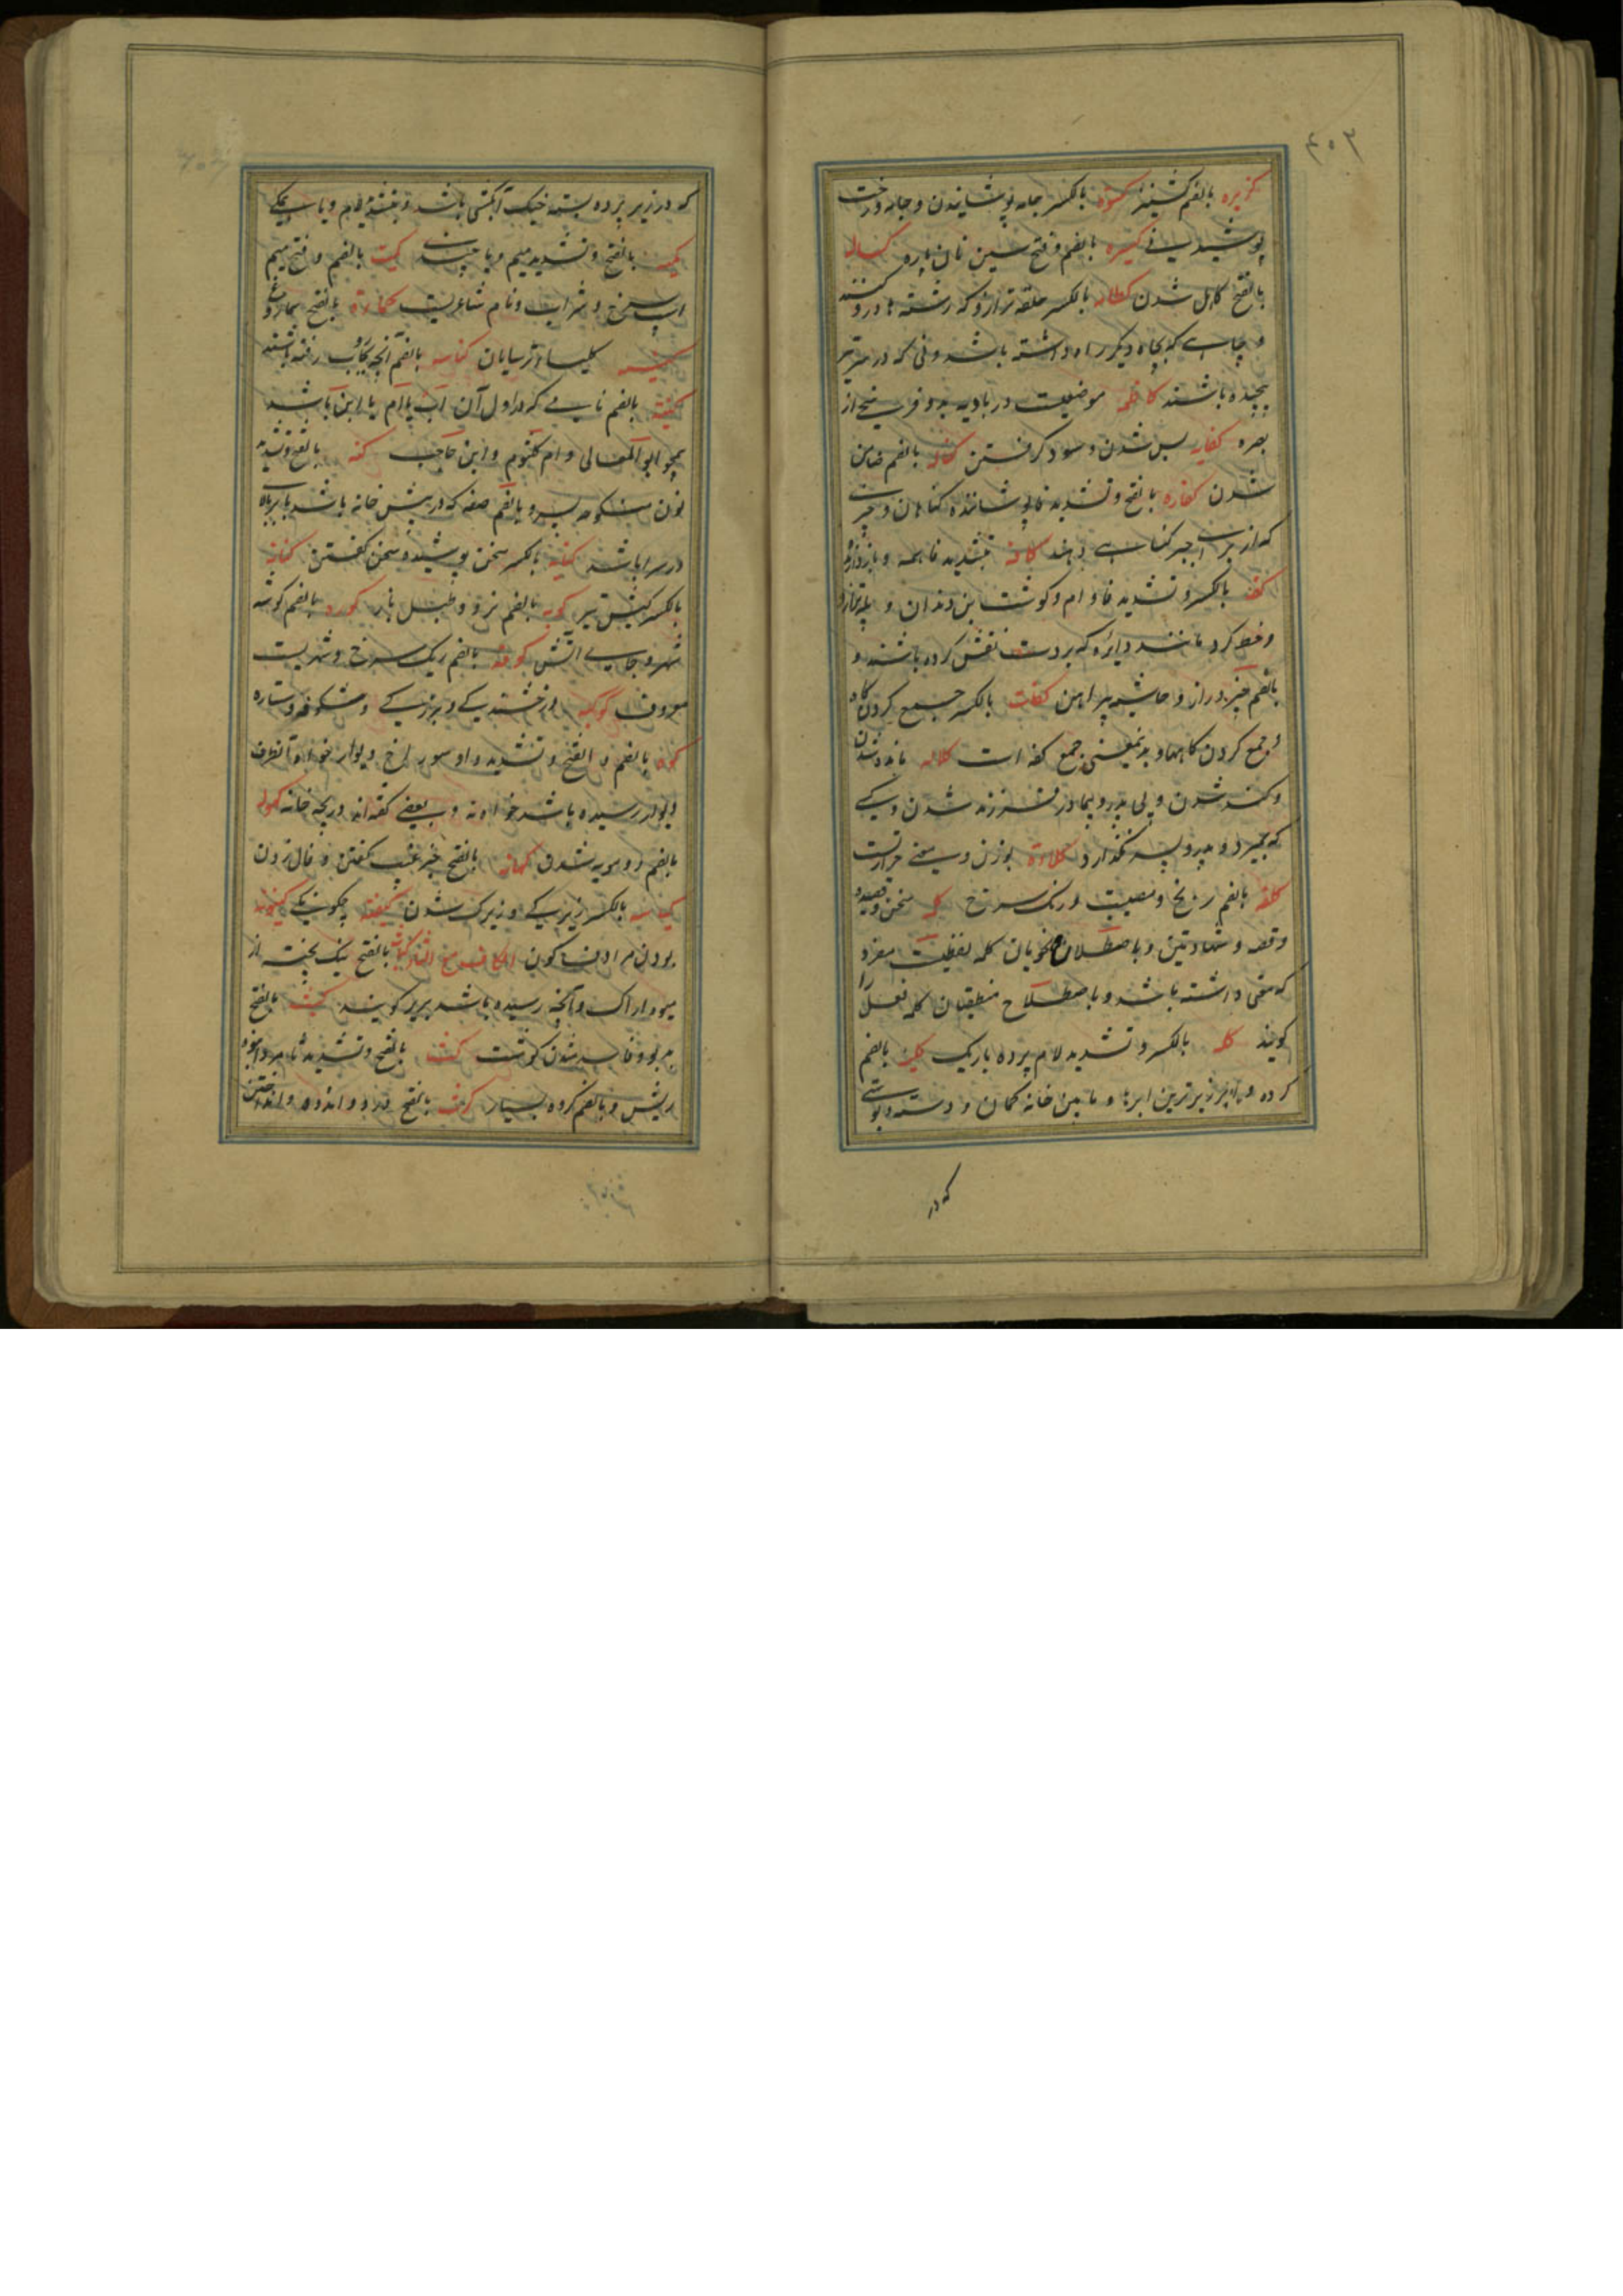 ۴۰۳
کزبره بالضم کشنیز کسوه بالکسر جامه پوشانیدن و جامه و رخت
پوشیدنی کسیره بالضم و فتح سین نان پاره کسالة
بالفتح کاهل شدن کظامه بالکسر حلقه ترازو که رشتهها درو کنند
و چاهی که بچاه دیگر راه داشته باشد و پی که در سر تیر
پیچیده باشند کاظمه موضعیست در بادیه بدو فرسخی از
بصره کفایه بس شدن و سود گرفتن کفاله بالضم ضامن
شدن کفاره بالفتح و تشدید فا پوشاننده گناهان و چیزی
که از برای جبر گناهی دهند کافة بتشدید فا همه و بازدارنده
کفه بالکسر و تشدید فا و ام و گوشت بن دندان و پله ترازو
و خط گرد مانند دایره که بر دست نقش کرده باشند و
بالضم چیز دراز و حاشیه پیراهن کفات بالکسر جمع کردن
و جمع کردن و بدینمعنی جمع کفه است کلاله مانده شدن
و کند شدن و بی پدر و بیمادر فرزند شدن و کسی
که بمیرد و پدر و پسر نگذارد کلاءة بوزن و معنی حراست
کلفه بالضم رنج و مصیبت و رنگ سرخ کلمه سخن و قصیده
و قصه و شهادتین و باصطلاح نحویان کلمه لفظیست مفرد
که معنی داشته باشد و باصطلاح منطقیان کلمه فعل را
گویند کله بالکسر و تشدید لام پرده باریک کلیه بالضم
گرده و ابر زیرترین ابرها و مابین خانه کمان و دسته و پوستی
که در
که در زیر پرده بسته خیک آبکشی باشد و بتشدید لام و یا همگی
کمیه بالفتح و تشدید میم و یا چندی کمیت بالضم و فتح میم
اسب سرخ و شراب و نام شاعریست کماءة بالفتح سماروغ
کنیسه کلیساء ترسایان کناسه بالضم آنچه بجاروب رفته باشند
کنیت بالضم نامی که در اول آن اب یا ام یا ابن باشد
همچو ابوالمعالی و ام کلثوم و ابن حاجب کنه بالفتح و تشدید
نون منکوحه پسر و بالضم صفه که در پیش خانه باشد یا بر بالای
در سرا باشد کنایة بالکسر سخن پوشیده سخن گفتن کنانه
بالکسر کیش تیر کوبه بالضم نرد و طبل باز کوره بالضم گوشه
شهر و جای آتش کوفه بالضم ریگ سرخ و شهریست
معروف کوکبه درخشندگی و بزرگی و شکوفه و ستاره
کوه بالضم و الفتح و تشدید واو سوراخ دیوار خواه بآنطرف
دیوار رسیده باشد خواه نه و بعضی گفتهاند دریچه خانه کهوله
بالضم دو مویه شدن کهانه بالفتح خبر غیب گفتن و فال زدن
کیاسه بالکسر زیرکی و زیرک شدن کیفیة چگونگی کینونه
بودن مرادف کون الکاف مع الثاء کباث بالفتح نیک پخته از
میوه اراک و آنچه رسیده باشد بریر گویند کبث بالفتح
بدبو و فاسد شدن گوشت کث بالفتح و تشدید ثا مرد انبوه
ریش و بالضم گروه بسیار کرث بالفتح درد و اندوه و انداختن